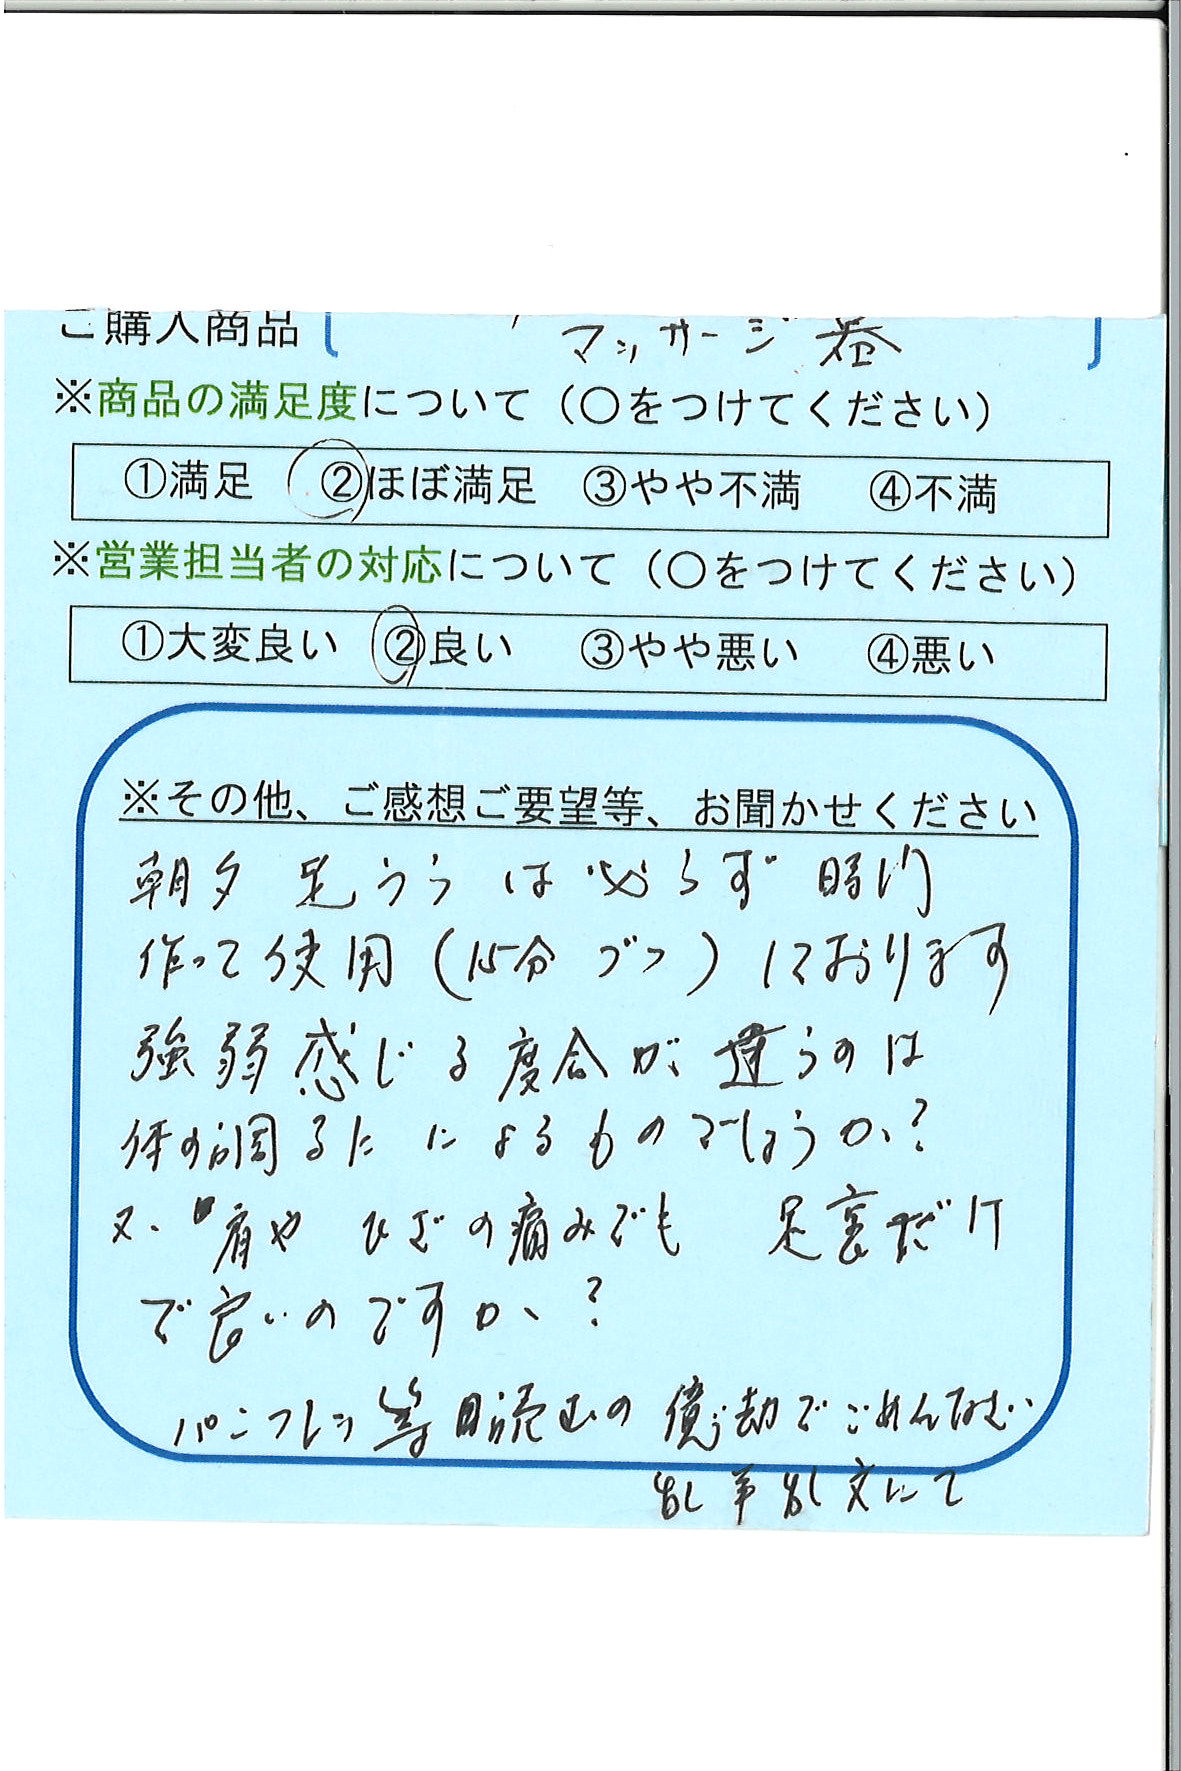 ご購入商品 [ マッサージ器 ]
※商品の満足度について（○をつけてください）
①満足 ②ほぼ満足 ③やや不満 ④不満
※営業担当者の対応について（○をつけてください）
①大変良い ②良い ③やや悪い ④悪い
※その他、ご感想ご要望等、お聞かせください
朝夕 足うらは必らず時間
作って使用（15分ずつ）しております
強弱 感じる度合が違うのは
体の調るしによるものでしょうか？
又、肩や ひざの痛みでも 足裏だけ
で良いのですか、？
パンフレッ等 読むの 億劫でごめんなさい
乱筆乱文にて